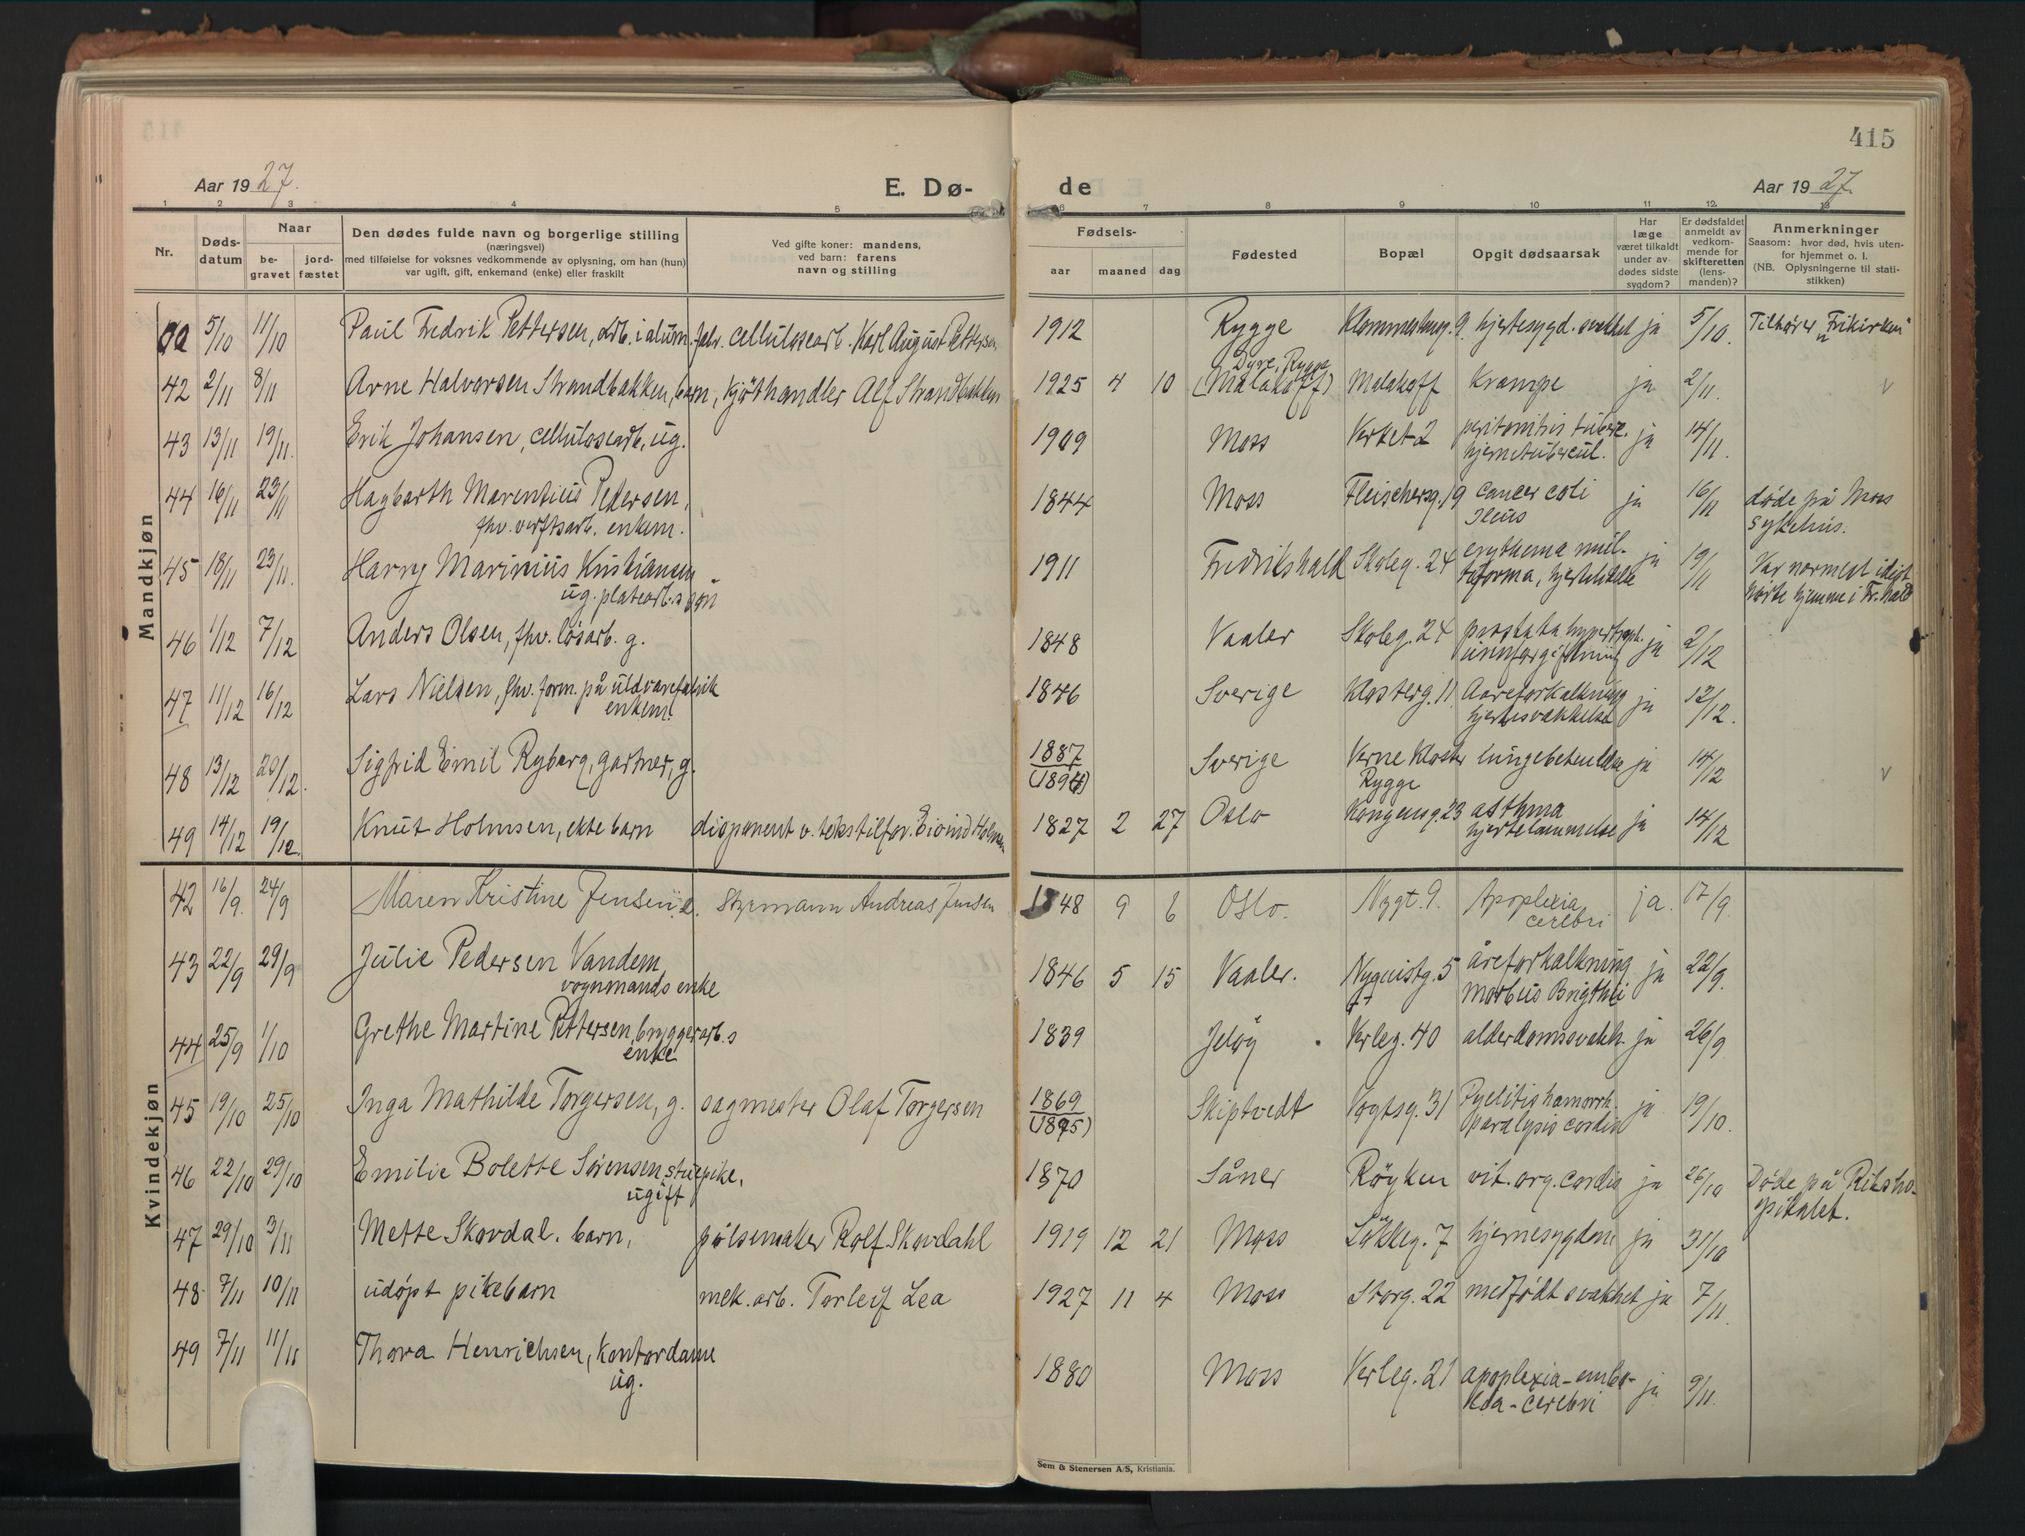 415
Aar 1927.
E. Dø-
de
Aar 1927.
1 2 3 4 5 6 7 8 9 10 11 12 13
Nr.
Døds-
datum
Naar
be-
gravet
jord-
fæstet
Den dødes fulde navn og borgerlige stilling
(næringsvei)
med tilføielse for voksnes vedkommende av oplysning, om han (hun)
var ugift, gift, enkemand (enke) eller fraskilt
Ved gifte koner: mandens,
ved barn: farens
navn og stilling
Fødsels-
aar maaned dag
Fødested
Bopæl
Opgit dødsaarsak
Har
læge
været tilkaldt
under av-
dødes sidste
sygdom?
Er dødsfaldet
anmeldt av
vedkom-
mende for
skifteretten
(lens-
manden)?
Anmerkninger
Saasom: hvor død, hvis uten-
for hjemmet o. l.
(NB. Oplysningerne til stati-
stikken)
Mandkjøn
5/10 11/10 Paul Fredrik Pettersen, arb. i alum. fabr. cellulosearb. Karl August Pettersen 1912 Rygge 9. hjertesygd. svakhet ja 5/10. Tilhører "Frikirken"
42 2/11 8/11 Arne Halvorsen Strandbakken, barn, kjøthandler Alf Strandbakken 1925 4 10 Dyre, Rygge (Malakoff) Malakoff Krampe ja 2/11. v
43 13/11 19/11. Erik Johansen, cellulosearb, ug. 1909 Moss Verket 2 peritonitis tuberc.
hjernetubercul. ja 14/11.
44 16/11 23/11 Hagbarth Marentius Pedersen,
fhv. verftsarb. enkem. 1844 Moss Fleischersg. 19 cancer coli
Ileus ja 16/11 døde på Moss
sykehus.
45 18/11 23/11. Harry Marinius Kristiansen
ug. platearb.s søn 1911 Fredrikshald Skoleg. 24 erythema mul-
tiforma, hjertelidelse ja 19/11 Var normest
hørte hjemme i Fr.hald
46 1/12 7/12 Anders Olsen, fhv. løsarb. g. 1848 Vaaler Skoleg. 24 prostata hypertroph.
urinforgiftning ja 2/12
47 11/12 16/12 Lars Nielsen, fhv. form. på uldvarefabrik
enkem. 1846 Sverige Klosterg. 11, Aareforkalkning
hjertesvakkelse ja 12/12.
48 13/12 20/12. Sigfrid Emil Ryberg, gartner, g. 1887
(1894) Sverige Verne Kloster
Rygge lungebetendelse ja 14/12 v
49 14/12 19/12. Knut Holmsen, ekte barn disponent v. tekstilfor. Eivind Holmsen 1827 2 27 Oslo Kongensg. 23 asthma
hjertelammelse ja 14/12
Kvindekjøn
42 16/9. 24/9 Maren Kristine Jensen, e. Styrmann Andreas Jensen 1848 9 6 Oslo. Nygt. 9. Apoplexia
cerebri ja. 17/9.
43 22/9 29/9 Julie Pedersen Vandem
vognmands enke 1846 5 15 Vaaler. Nyquistg. 5 åreforkalkning
Morbus Brigthii ja 22/9.
44 25/9 1/10 Grethe Martine Pettersen, bryggerarb.s
enke 1839 Jeløy Verleg. 40 alderdomssvakh. ja 26/9
45 19/10 25/10 Inga Mathilde Torgersen, g. sagmester Olaf Torgersen 1869
(1895) Skiptvedt Vogtsg. 31 Pyelitis hamorrh.
paralysis cordis ja 19/10.
46 22/10 29/10 Emilie Bolette Sørensen, stuepike,
ugift 1870 Såner Røyken vit. org. cordis ja 26/10 Døde på Riksho-
spitalet.
47 29/10 3/11 Mette Skovdal. barn, pølsemaker Rolf Skovdahl 1919 12 21 Moss Løkkeg. 7 hjernesygdom ja 31/10
48 7/11 10/11 udøpt pikebarn mek. arb. Torleif Lea 1927 11 4 Moss Storg. 22 medfødt svakhet ja 7/11.
49 7/11 11/11 Thora Henrichsen, kontordame
ug. 1880 Moss Verleg. 21 apoplexia-embo-
lia-cerebri ja 9/11.
Sem & Stenersen A/S, Kristiania.